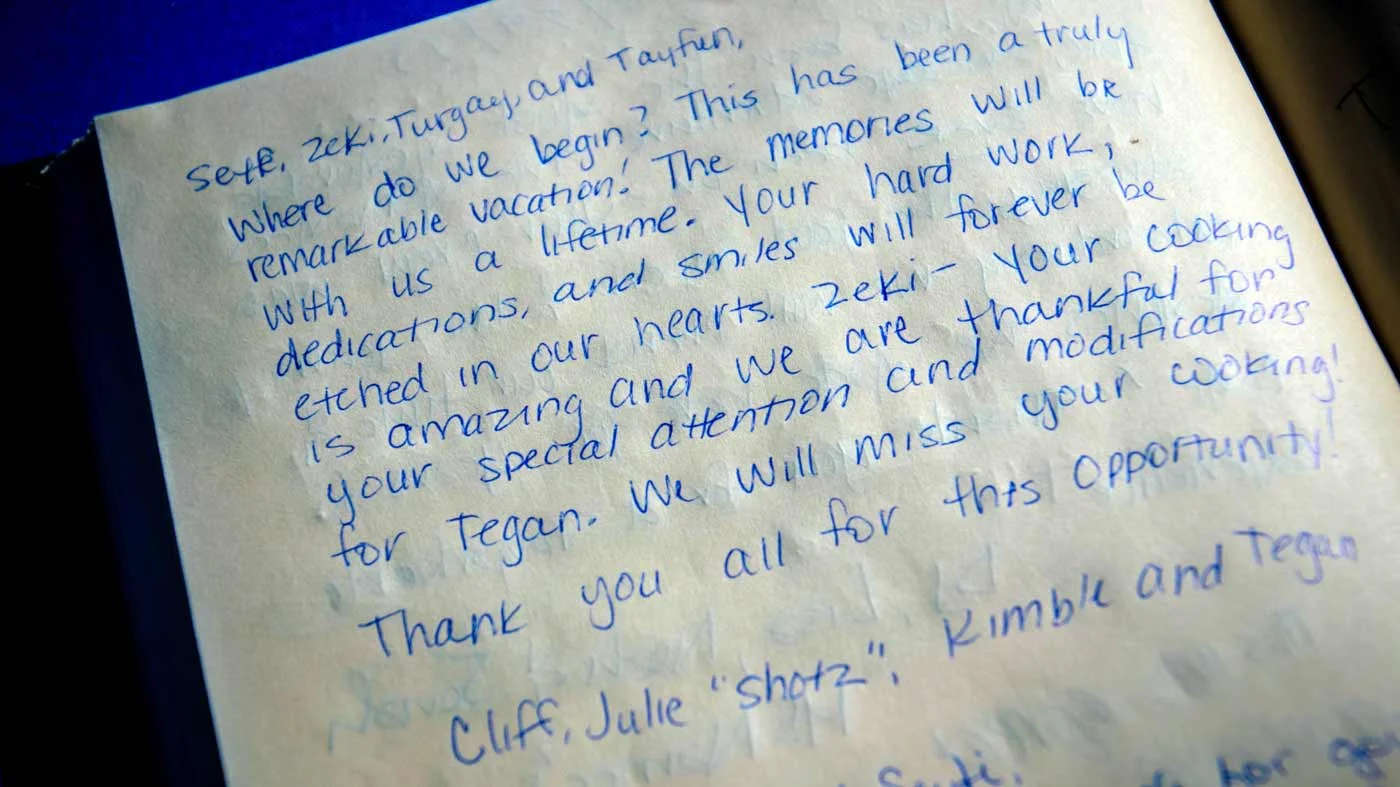 Zeki, Turgay, and Tayfun,
Where do we begin? This has been a truly
remarkable vacation! The memories will be
with us a lifetime. Your hard work,
dedications, and smiles will forever be
etched in our hearts. Zeki- your cooking
is amazing and we are thankful for
your special attention and modifications
for Tegan. We will miss your cooking!
Thank you all for this opportunity!
Cliff, Julie "Shotz", Kimble and Tegan
for